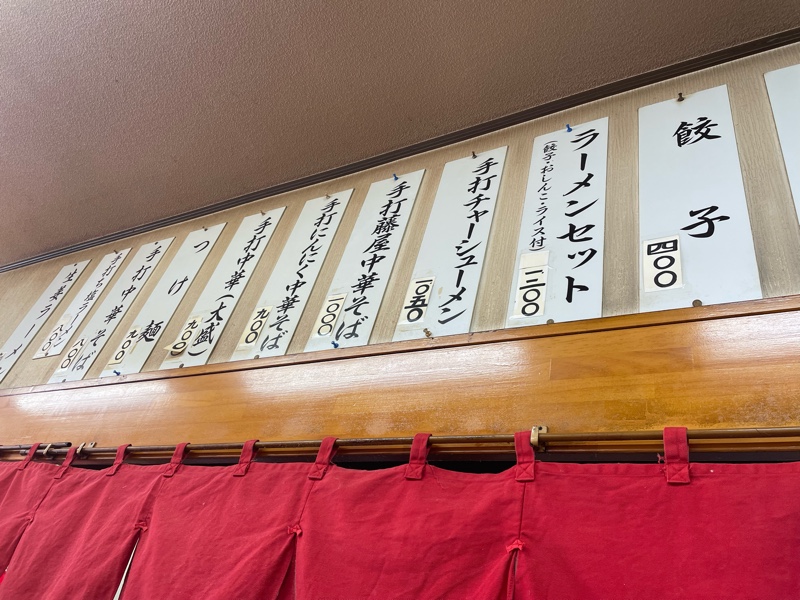 餃子
四〇〇
ラーメンセット
(餃子・おしんこ・ライス付)
一二〇〇
手打チャーシューメン
一〇五〇
手打藤屋中華そば
一〇〇〇
手打にんにく中華そば
九〇〇
手打中華(大盛)
九〇〇
つけ麺
九〇〇
手打中華そば
八〇〇
手打ち塩(ラーメン)
八〇〇
生姜ラーメン